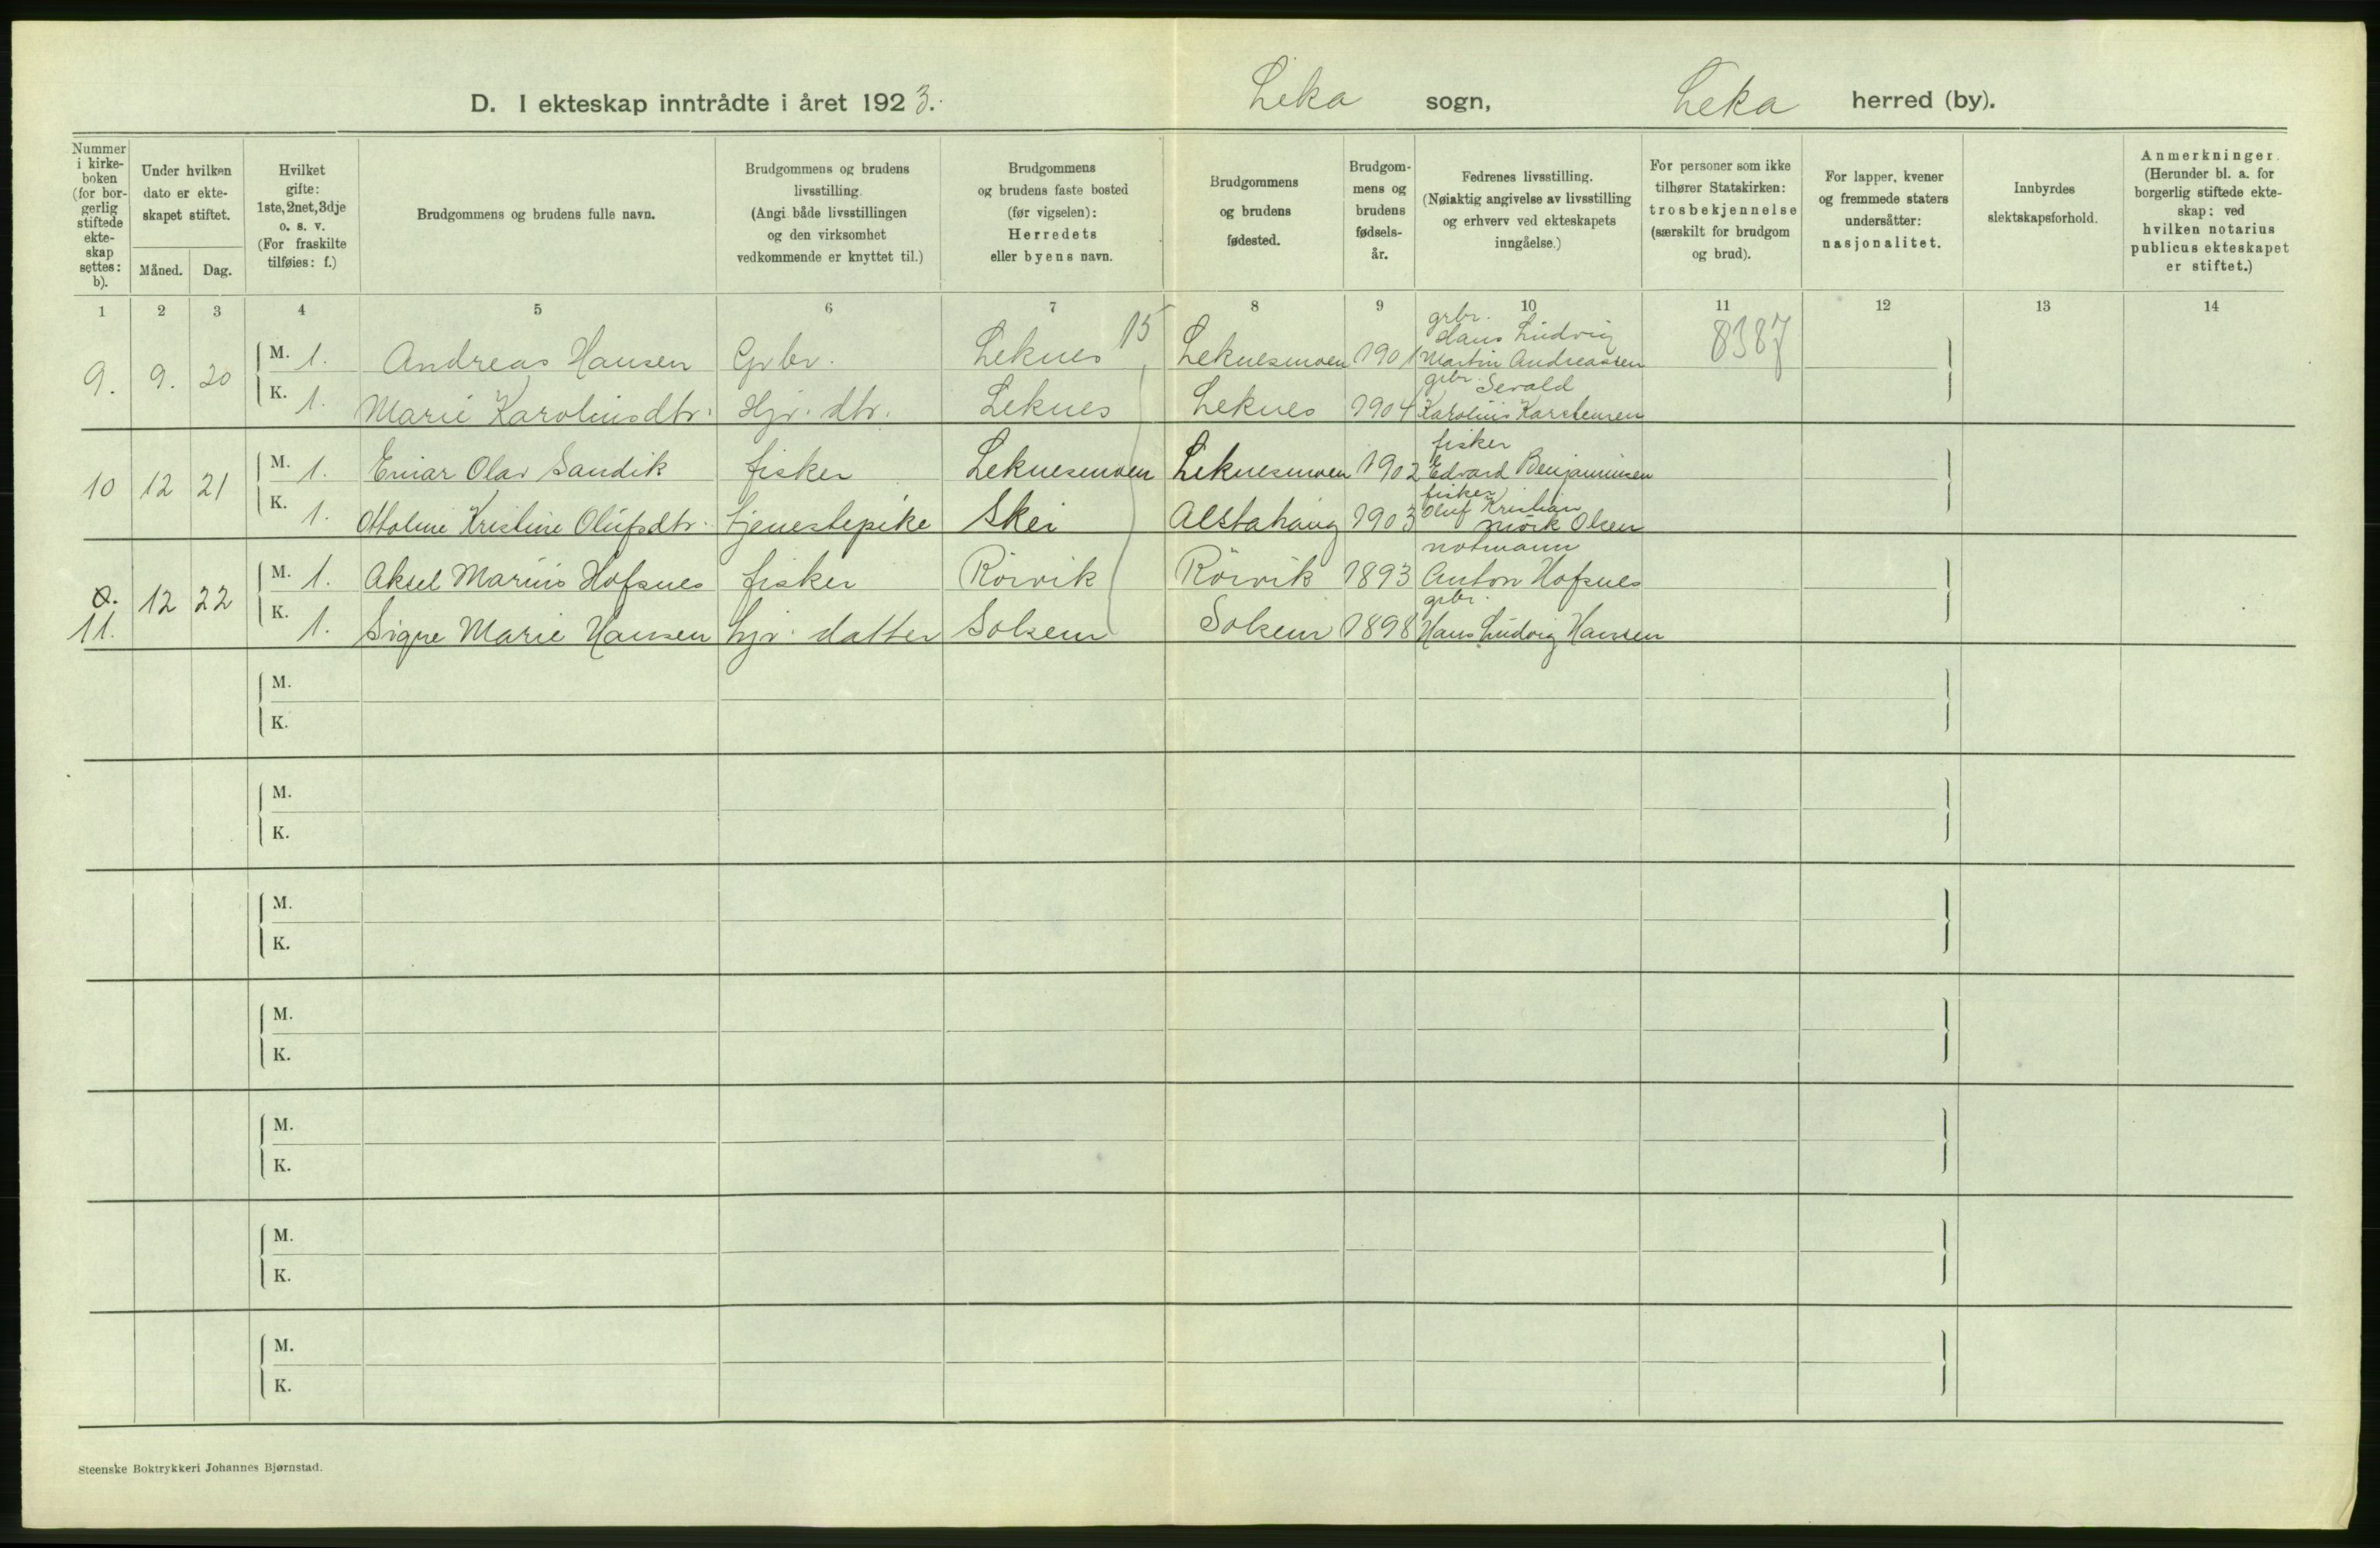 D. I ekteskap inntrådte i året 1923. Leka sogn, Leka herred (by).
Nummer
i kirke-
boken
(for bor-
gerlig
stiftede
ekte-
skap
settes:
b).
Under hvilken
dato er ekte-
skapet stiftet.
Måned. Dag.
Hvilket
gifte:
1ste, 2net, 3dje
o. s. v.
(For fraskilte
tilføies: f.)
Brudgommens og brudens fulle navn.
Brudgommens og brudens
livsstilling.
(Angi både livsstillingen
og den virksomhet
vedkommende er knyttet til.)
Brudgommens
og brudens faste bosted
(før vigselen):
Herredets
eller byens navn.
Brudgommens
og brudens
fødested.
Brudgom-
mens og
brudens
fødsels-
år.
Fedrenes livsstilling.
(Nøiaktig angivelse av livsstilling
og erhverv ved ekteskapets
inngåelse.)
For personer som ikke
tilhører Statskirken:
trosbekjennelse
(særskilt for brudgom
og brud).
For lapper, kvener
og fremmede staters
undersåtter:
nasjonalitet.
Innbyrdes
slektskapsforhold.
Anmerkninger.
(Herunder bl. a. for
borgerlig stiftede ekte-
skap: ved
hvilken notarius
publicus ekteskapet
er stiftet.)
1 2 3 4 5 6 7 8 9 10 11 12 13 14
15
8387
grbr.
Hans Ludvig
9. 9. 20 M. 1. Andreas Hansen Grbr. Leknes Leknesmoen 1901 Martin Andreassen
grbr. Sevald
K. 1. Marie Karolinsdtr. Hjv. dtr. Leknes Leknes 1904 Karolius Karstensen
fisker
10 12 21 M. 1. Einar Olav Sandik fisker Leknesmoen Leknesmoen 1902 Edvard Benjaminsen
fisker
Oluf Kristian
K. 1. Ottoline Kristine Olufsdtr. tjenestepike Skei Alstahaug 1903 Mörk Olsen
notmann
0. 12 22 M. 1. Aksel Marius Hofsnes fisker Rörvik Rörvik 1893 Anton Hofsnes
grbr.
11. K. 1. Signe Marie Hansen hjv. datter Solsem Solsem 1898 Hans Ludvig Hansen
M.
K.
M.
K.
M.
K.
M.
K.
M.
K.
M.
K.
M.
K.
Steenske Boktrykkeri Johannes Bjørnstad.